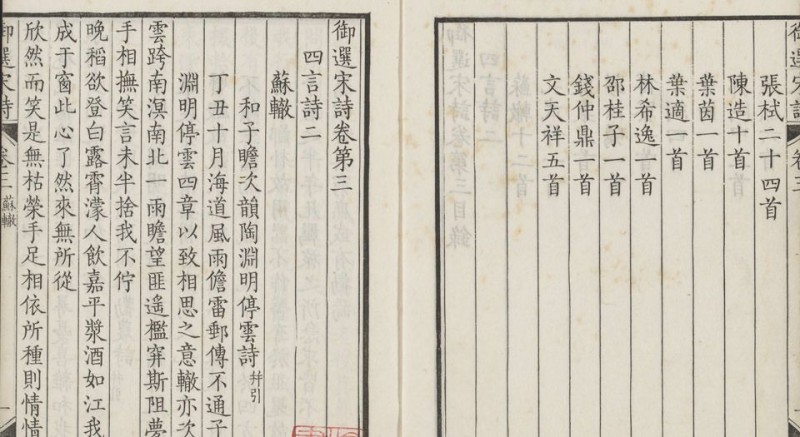 御選宋詩 卷三
張栻二十四首
陳造十首
葉茵一首
葉適一首
林希逸一首
邵桂子一首
錢仲鼎一首
文天祥五首
御選宋詩卷第三
四言詩二
蘇轍
和子瞻次韻陶淵明停雲詩 并引
丁丑十月海道風雨儋雷郵傳不通子
淵明停雲四章以致相思之意轍亦次
雲跨南溟南北一雨瞻望匪遙檻穽斯阻夢
手相撫笑言未半捨我不佇
晚稻欲登白露霄濛人飲嘉平漿酒如江我
成于窗此心了然來無所從
欣然而笑是無枯榮手足相依所種則情情
御選宋詩 卷三 蘇轍 一